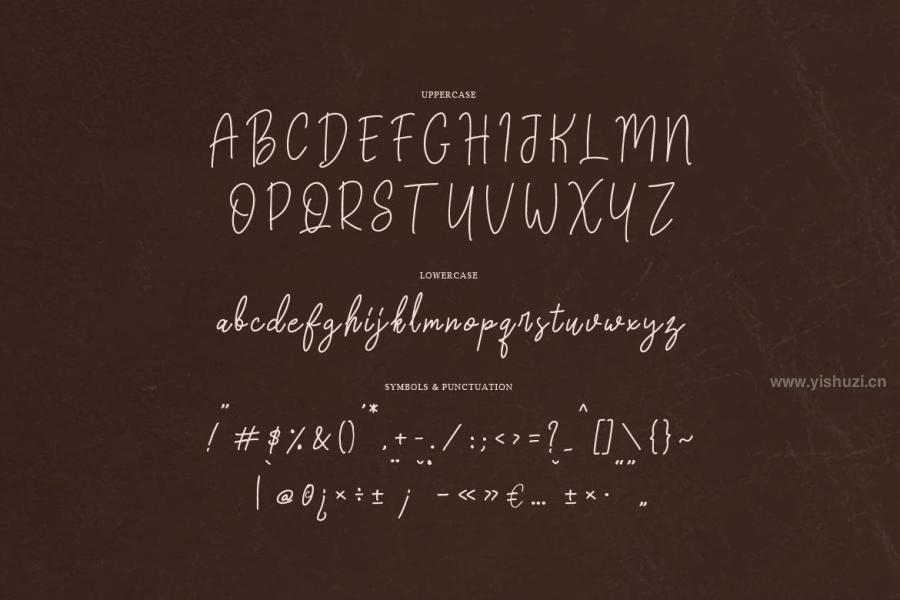 UPPERCASE
ABCDEFGHIJKLMN
OPQRSTUVWXYZ
LOWERCASE
abcdefghijklmnopqrstuvwxyz
www.yishuzi.cn
SYMBOLS & PUNCTUATION
! " # $ % & ( ) ' * , + - . / : ; < > = ? _ ^ [ ] \ { } ~
| @ θ ¿ × ÷ ± ¡ – « » € … ± × · „